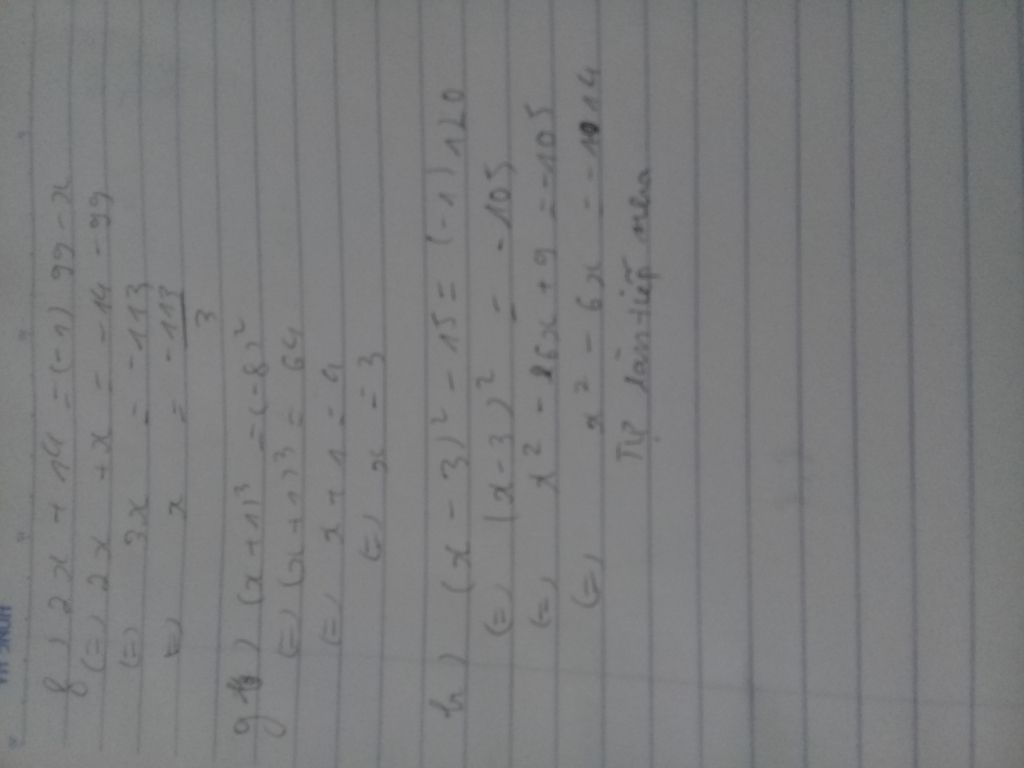 f) 2x + 14 = (-1) 99 - x
(=) 2x + x = -14 - 99
(=) 3x = -113
(=) x = -113
3
g) (x+1)³ = (-8)²
(=) (x+1)³ = 64
(=) x + 1 = 4
(=) x = 3
h) (x - 3)² - 15 = (-1) 120
(=) (x-3)² = -105
(=) x² - 6x + 9 = -105
(=) x² - 6x = -114